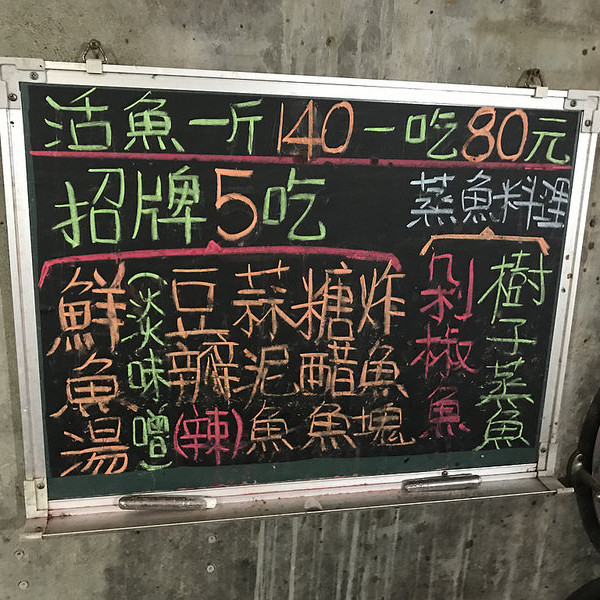 活魚一斤140一吃80元
招牌5吃
蒸魚料理
樹子蒸魚
剁椒魚
炸魚塊
糖醋魚
蒜泥魚
豆瓣(辣)
(淡味噌)
鮮魚湯